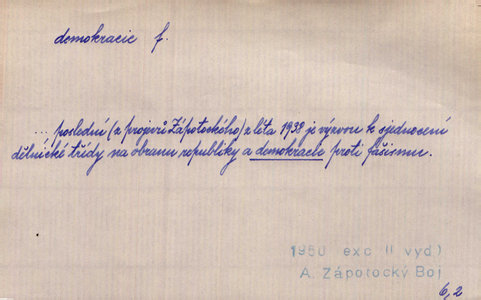 demokracie f.
... poslední (z projevů Zápotockého) z léta 1938 je výzvou k sjednocení
dělnické třídy na obranu republiky a demokracie proti fašismu.
1950 exc (I vyd)
A. Zápotocký Boj
6,2